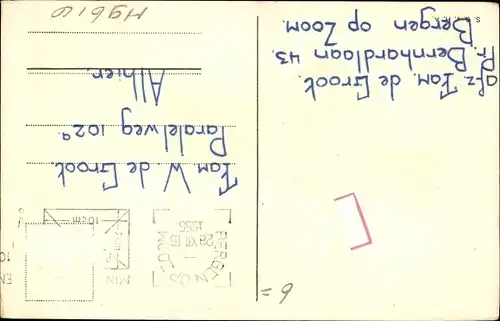 afz. Fam. de Groot.
Pr. Bernhardlaan 43.
Bergen op Zoom.
BERGEN
28 XII 16
1955
10 cm
MIN
Fam. W. de Groot.
Paralelweg 102a.
Alhier.
= 6